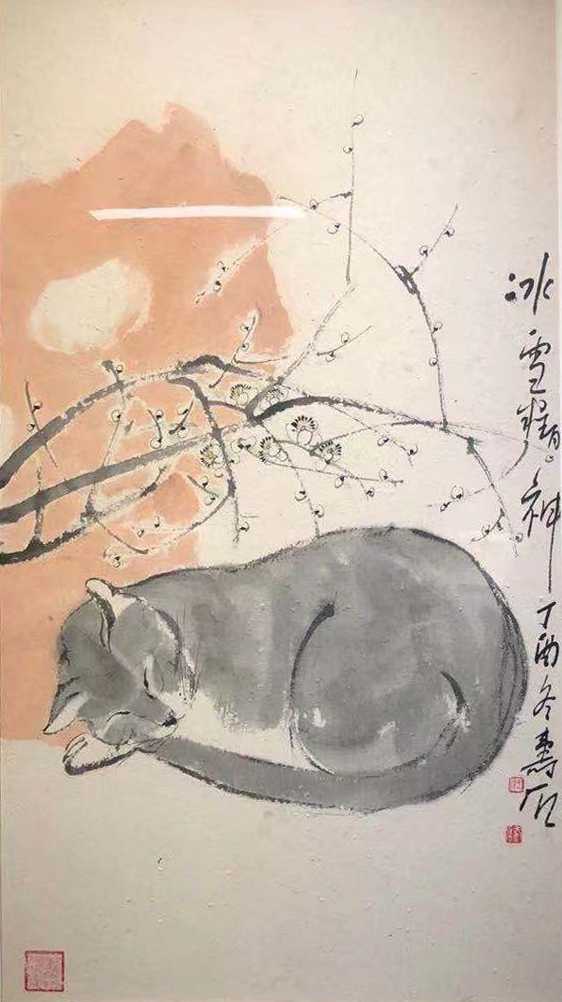 冰雪精神
丁酉冬壽石